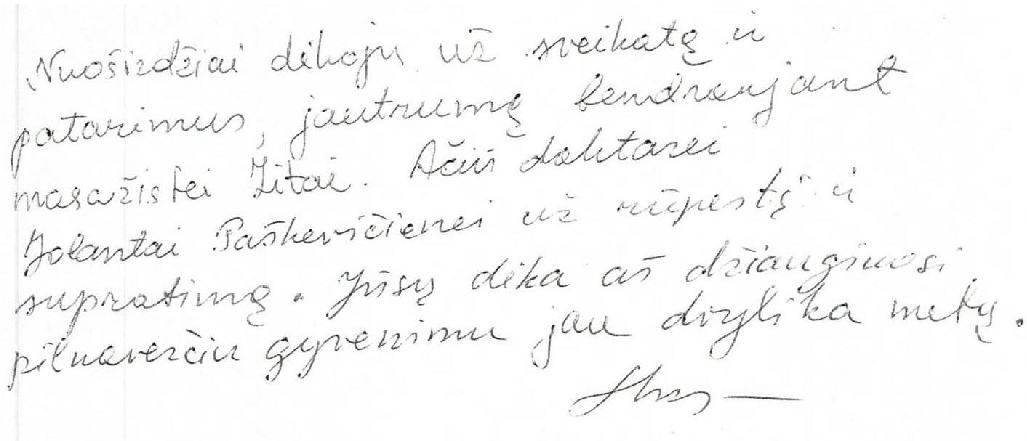 Nuoširdžiai dėkoju už sveikatą ir
patarimus, jautrumą bendraujant
masažistei Zitai. Ačiū daktarei
Jolantai Paškevičienei už rūpestį ir
supratimą. Jūsų dėka aš džiaugiuosi
pilnaverčiu gyvenimu jau dvylika metų.